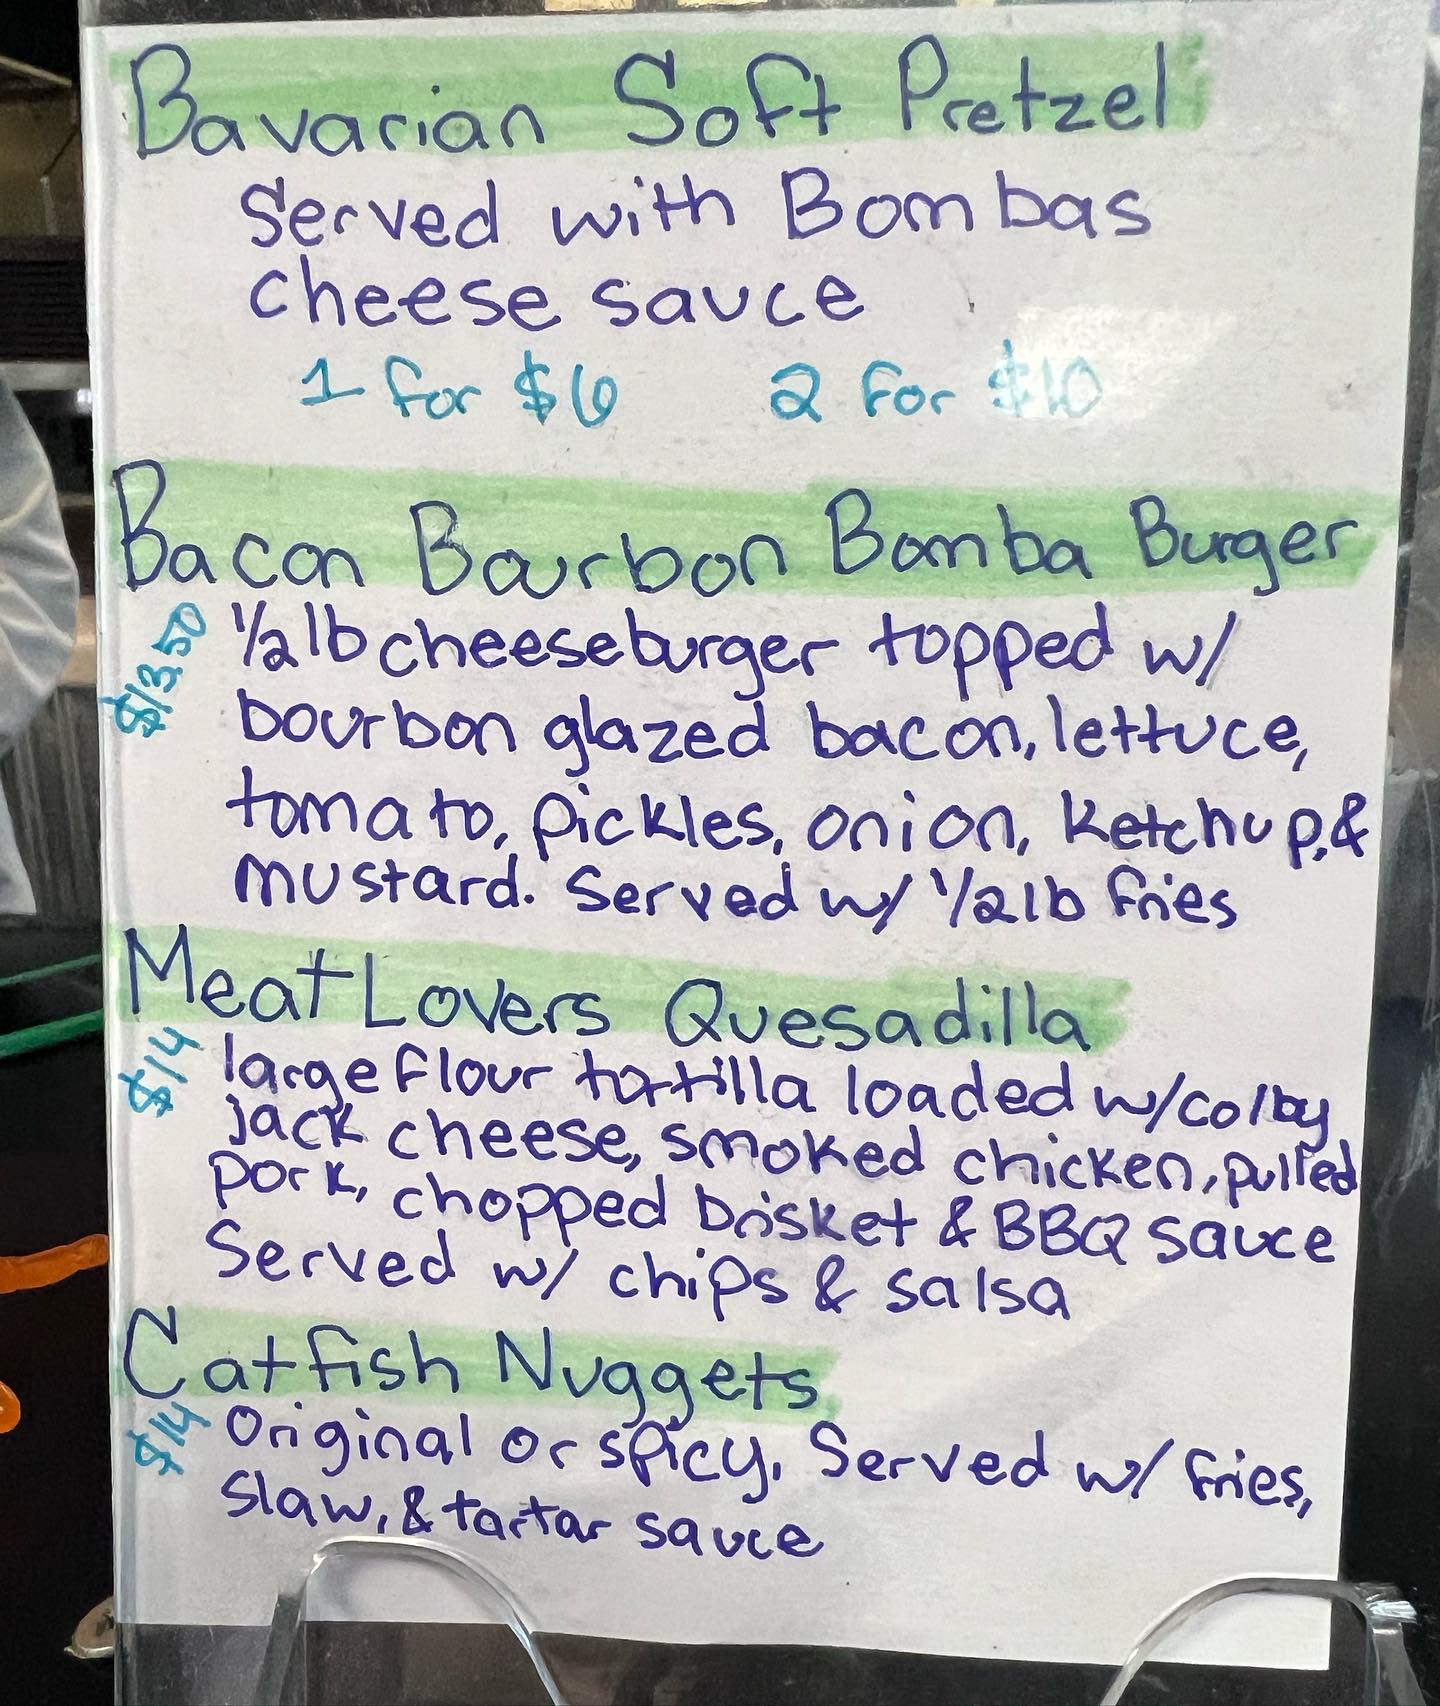 Bavarian Soft Pretzel
Served with Bombas
cheese sauce
1 for $6 2 for $10
Bacon Bourbon Bomba Burger
$13.50
1/2 lb cheeseburger topped w/
bourbon glazed bacon, lettuce,
tomato, pickles, onion, ketchup, &
mustard. Served w/ 1/2 lb fries
Meat Lovers Quesadilla
$14
large flour tortilla loaded w/ colby
jack cheese, smoked chicken, pulled
pork, chopped brisket & BBQ sauce
Served w/ chips & salsa
Catfish Nuggets
$14
Original or spicy. Served w/ fries,
slaw, & tartar sauce